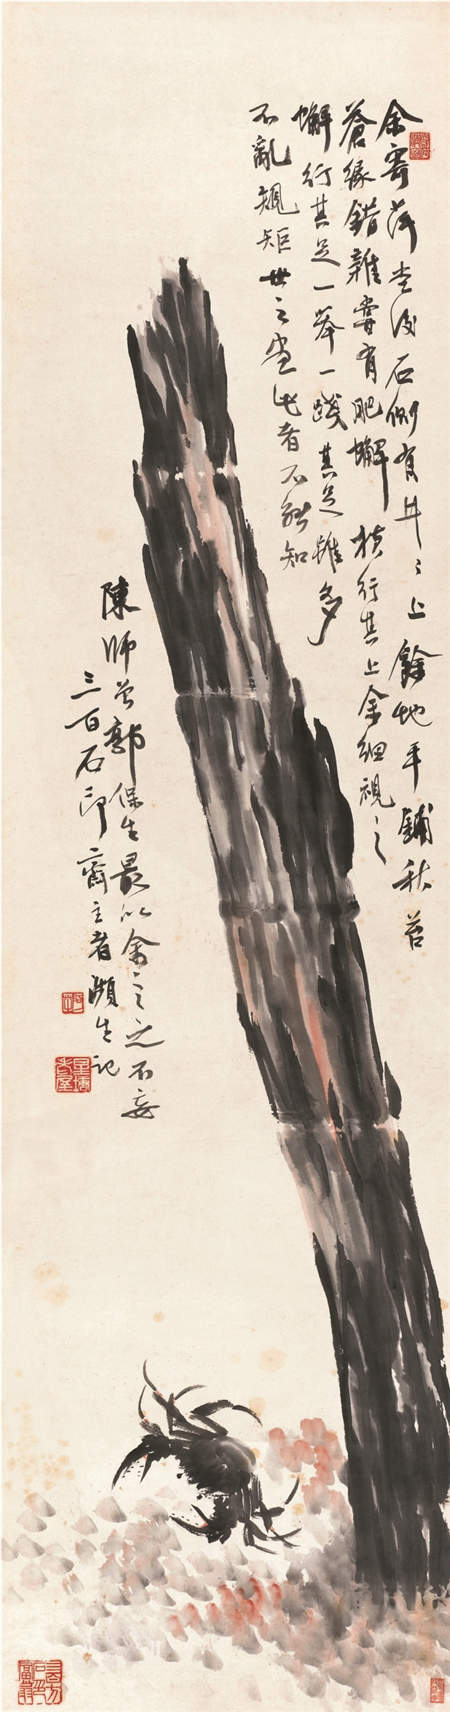 余寄萍堂後石側有井ミ上餘地平鋪秋苔
蒼綠錯雜嘗有肥蠏橫行其上余細視之
蠏行其足一舉一踐其足雖多
不亂規矩世之畫此者不能知
陳師曾郭保生最以余言之不妄
三百石印齋主者瀕生記